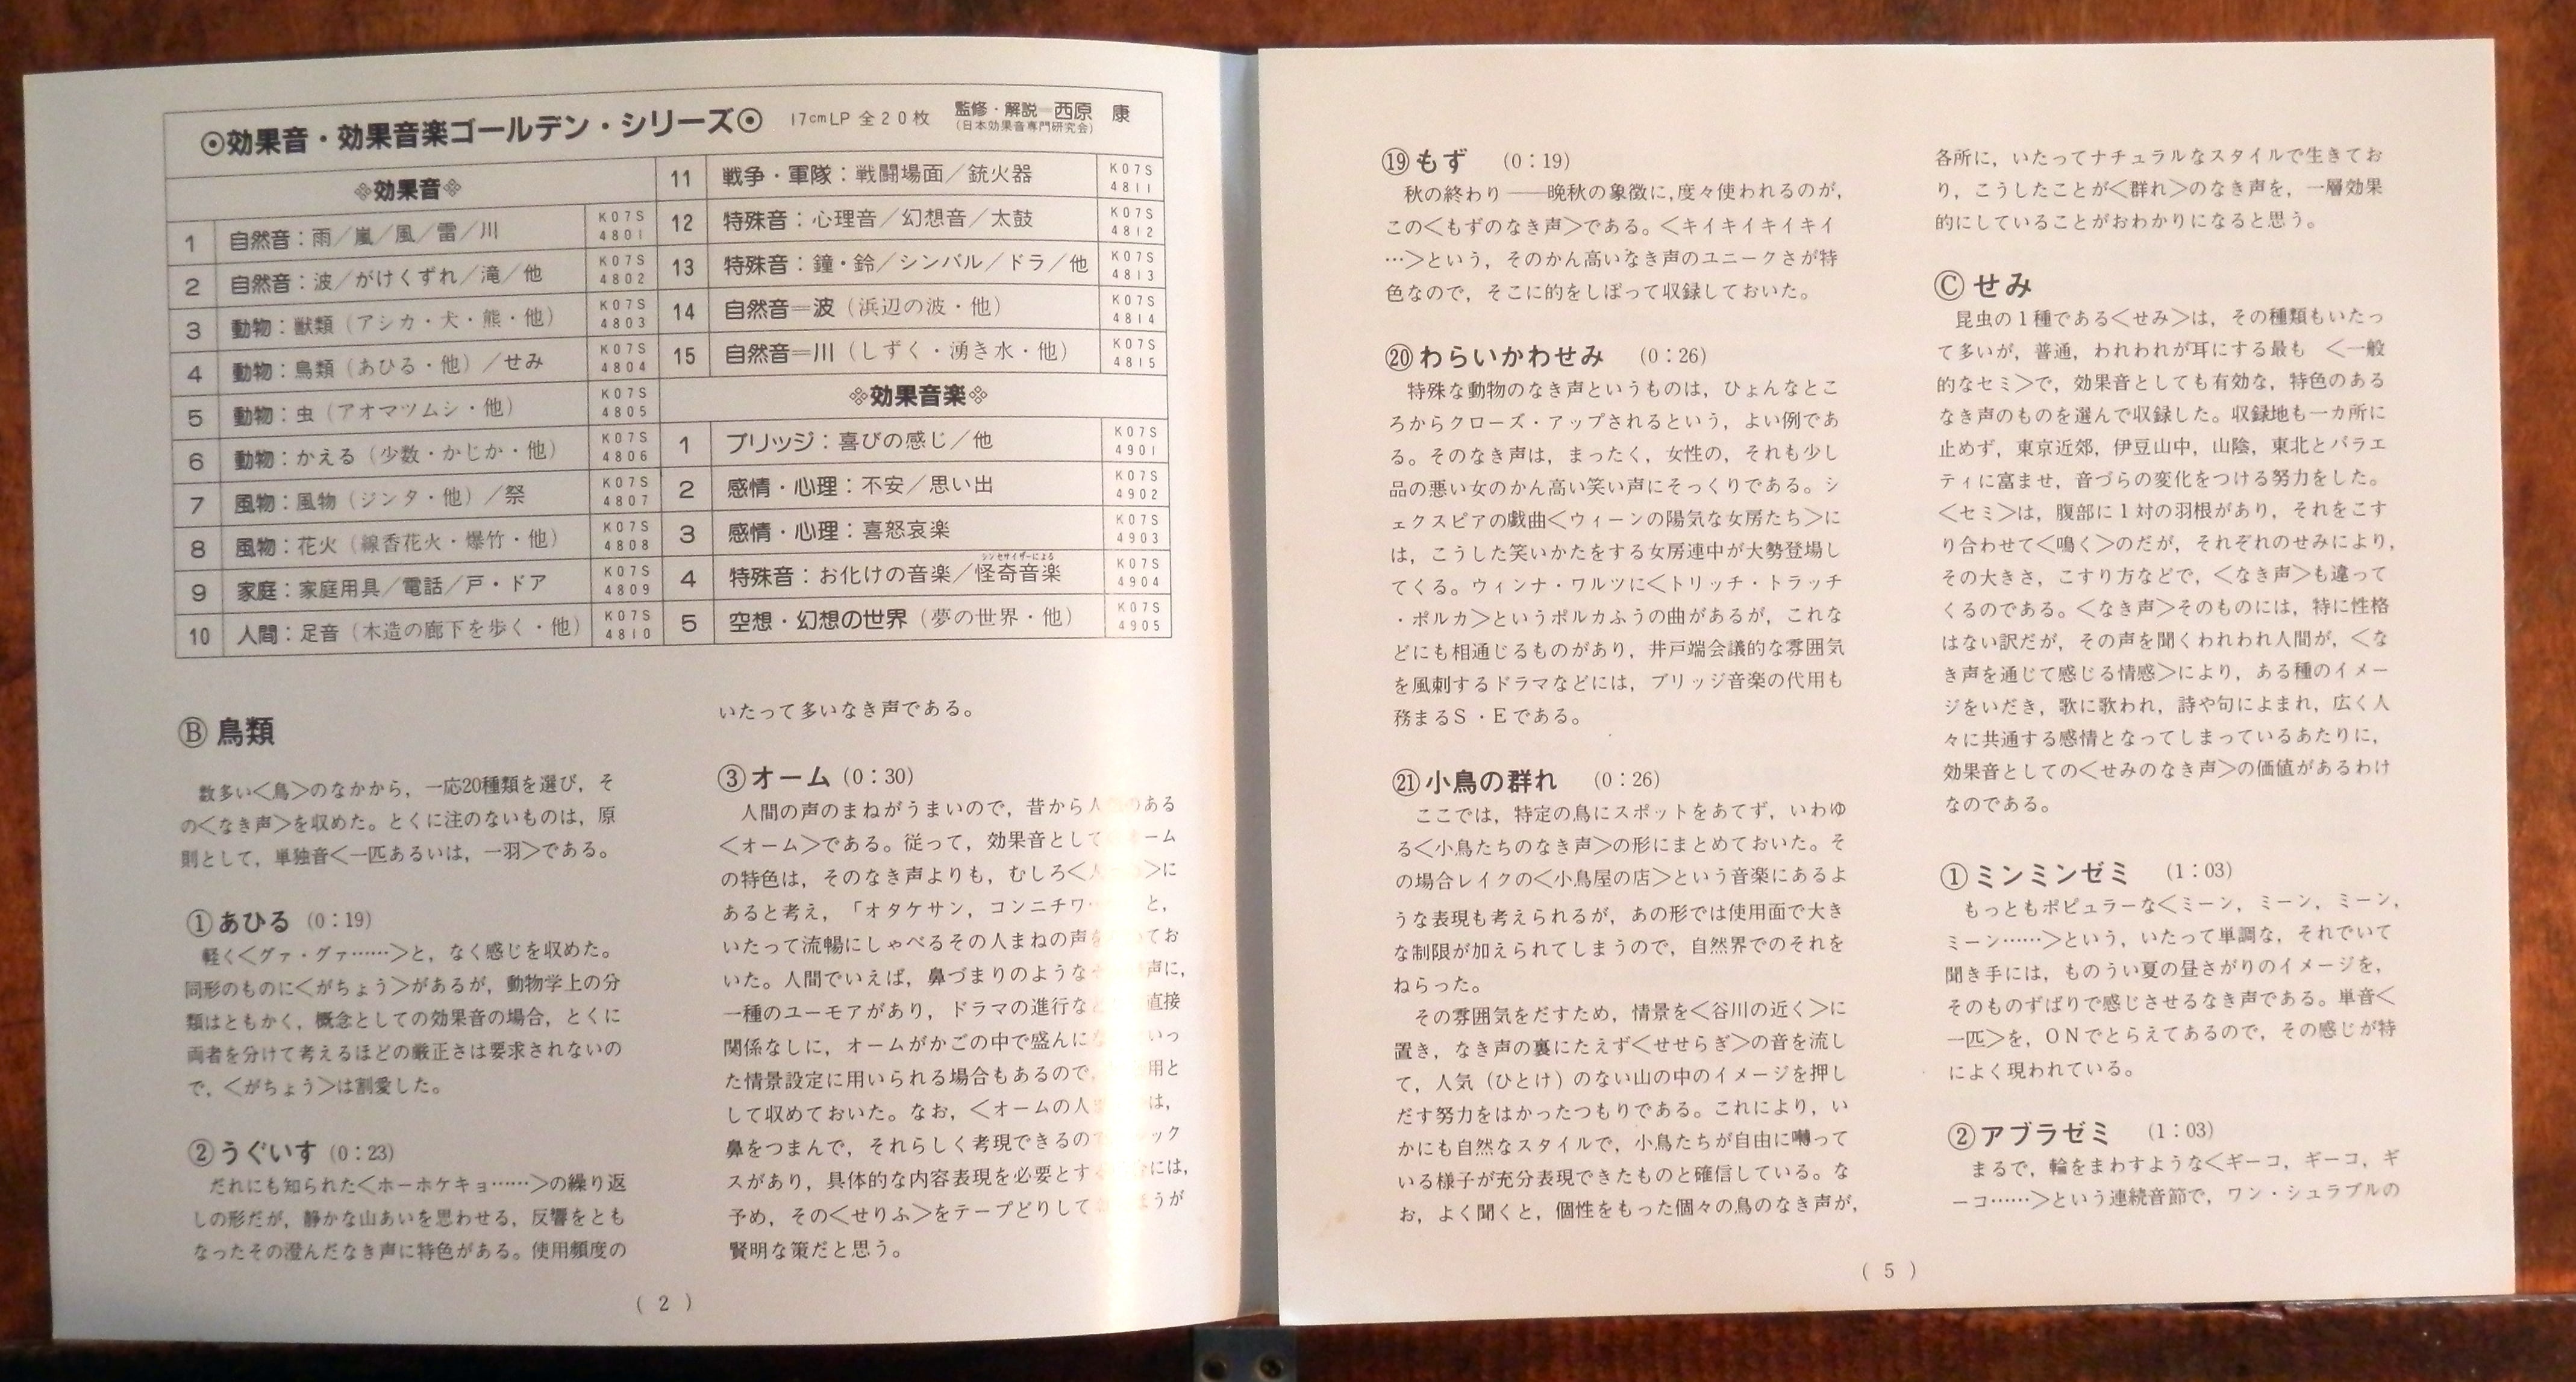 ⊙効果音・効果音楽ゴールデン・シリーズ⊙ 17cmLP 全20枚 監修・解説=西原 康
(日本効果音専門研究会)
効果音
1 自然音：雨／嵐／風／雷／川 K07S 4801
2 自然音：波／がけくずれ／滝／他 K07S 4802
3 動物：獣類（アシカ・犬・熊・他） K07S 4803
4 動物：鳥類（あひる・他）／せみ K07S 4804
5 動物：虫（アオマツムシ・他） K07S 4805
6 動物：かえる（少数・かじか・他） K07S 4806
7 風物：風物（ジンタ・他）／祭 K07S 4807
8 風物：花火（線香花火・爆竹・他） K07S 4808
9 家庭：家庭用具／電話／戸・ドア K07S 4809
10 人間：足音（木造の廊下を歩く・他） K07S 4810
11 戦争・軍隊：戦闘場面／銃火器 K07S 4811
12 特殊音：心理音／幻想音／太鼓 K07S 4812
13 特殊音：鐘・鈴／シンバル／ドラ／他 K07S 4813
14 自然音=波（浜辺の波・他） K07S 4814
15 自然音=川（しずく・湧き水・他） K07S 4815
効果音楽
1 ブリッジ：喜びの感じ／他 K07S 4901
2 感情・心理：不安／思い出 K07S 4902
3 感情・心理：喜怒哀楽 K07S 4903
シンセサイザーによる
4 特殊音：お化けの音楽／怪奇音楽 K07S 4904
5 空想・幻想の世界（夢の世界・他） K07S 4905
Ⓑ 鳥類
数多い＜鳥＞のなかから，一応20種類を選び，そ
の＜なき声＞を収めた。とくに注のないものは，原
則として，単独音＜一匹あるいは，一羽＞である。
①あひる (0：19)
軽く＜グァ・グァ……＞と，なく感じを収めた。
同形のものに＜がちょう＞があるが，動物学上の分
類はともかく，概念としての効果音の場合，とくに
両者を分けて考えるほどの厳正さは要求されないの
で，＜がちょう＞は割愛した。
②うぐいす (0：23)
だれにも知られた＜ホーホケキョ……＞の繰り返
しの形だが，静かな山あいを思わせる，反響をとも
なったその澄んだなき声に特色がある。使用頻度の
いたって多いなき声である。
③オーム (0：30)
人間の声のまねがうまいので，昔から人 のある
＜オーム＞である。従って，効果音として ーム
の特色は，そのなき声よりも，むしろ＜ ＞に
あると考え，「オタケサン，コンニチワ と，
いたって流暢にしゃべるその人まねの声を てお
いた。人間でいえば，鼻づまりのような 声に，
一種のユーモアがあり，ドラマの進行な 直接
関係なしに，オームがかごの中で盛んに いっ
た情景設定に用いられる場合もあるので， 用と
して収めておいた。なお，＜オームの人 は，
鼻をつまんで，それらしく考現できるの ック
スがあり，具体的な内容表現を必要とす には，
予め，その＜せりふ＞をテープどりして ほうが
賢明な策だと思う。
( 2 )
⑲もず (0：19)
秋の終わり――晩秋の象徴に，度々使われるのが，
この＜もずのなき声＞である。＜キイキイキイキイ
…＞という，そのかん高いなき声のユニークさが特
色なので，そこに的をしぼって収録しておいた。
⑳わらいかわせみ (0：26)
特殊な動物のなき声というものは，ひょんなとこ
ろからクローズ・アップされるという，よい例であ
る。そのなき声は，まったく，女性の，それも少し
品の悪い女のかん高い笑い声にそっくりである。シ
ェクスピアの戯曲＜ウィーンの陽気な女房たち＞に
は，こうした笑いかたをする女房連中が大勢登場し
てくる。ウィンナ・ワルツに＜トリッチ・トラッチ
・ポルカ＞というポルカふうの曲があるが，これな
どにも相通じるものがあり，井戸端会議的な雰囲気
を風刺するドラマなどには，ブリッジ音楽の代用も
務まるS・Eである。
㉑小鳥の群れ (0：26)
ここでは，特定の鳥にスポットをあてず，いわゆ
る＜小鳥たちのなき声＞の形にまとめておいた。そ
の場合レイクの＜小鳥屋の店＞という音楽にあるよ
うな表現も考えられるが，あの形では使用面で大き
な制限が加えられてしまうので，自然界でのそれを
ねらった。
その雰囲気をだすため，情景を＜谷川の近く＞に
置き，なき声の裏にたえず＜せせらぎ＞の音を流し
て，人気（ひとけ）のない山の中のイメージを押し
だす努力をはかったつもりである。これにより，い
かにも自然なスタイルで，小鳥たちが自由に囀って
いる様子が充分表現できたものと確信している。な
お，よく聞くと，個性をもった個々の鳥のなき声が，
各所に，いたってナチュラルなスタイルで生きてお
り，こうしたことが＜群れ＞のなき声を，一層効果
的にしていることがおわかりになると思う。
Ⓒ せみ
昆虫の1種である＜せみ＞は，その種類もいたっ
て多いが，普通，われわれが耳にする最も ＜一般
的なセミ＞で，効果音としても有効な，特色のある
なき声のものを選んで収録した。収録地も一カ所に
止めず，東京近郊，伊豆山中，山陰，東北とバラエ
ティに富ませ，音づらの変化をつける努力をした。
＜セミ＞は，腹部に1対の羽根があり，それをこす
り合わせて＜鳴く＞のだが，それぞれのせみにより，
その大きさ，こすり方などで，＜なき声＞も違って
くるのである。＜なき声＞そのものには，特に性格
はない訳だが，その声を聞くわれわれ人間が，＜な
き声を通じて感じる情感＞により，ある種のイメー
ジをいだき，歌に歌われ，詩や句によまれ，広く人
々に共通する感情となってしまっているあたりに，
効果音としての＜せみのなき声＞の価値があるわけ
なのである。
①ミンミンゼミ (1：03)
もっともポピュラーな＜ミーン，ミーン，ミーン，
ミーン……＞という，いたって単調な，それでいて
聞き手には，ものうい夏の昼さがりのイメージを，
そのものずばりで感じさせるなき声である。単音＜
一匹＞を，ONでとらえてあるので，その感じが特
によく現われている。
②アブラゼミ (1：03)
まるで，輪をまわすような＜ギーコ，ギーコ，ギ
ーコ……＞という連続音節で，ワン・シュラブルの
( 5 )